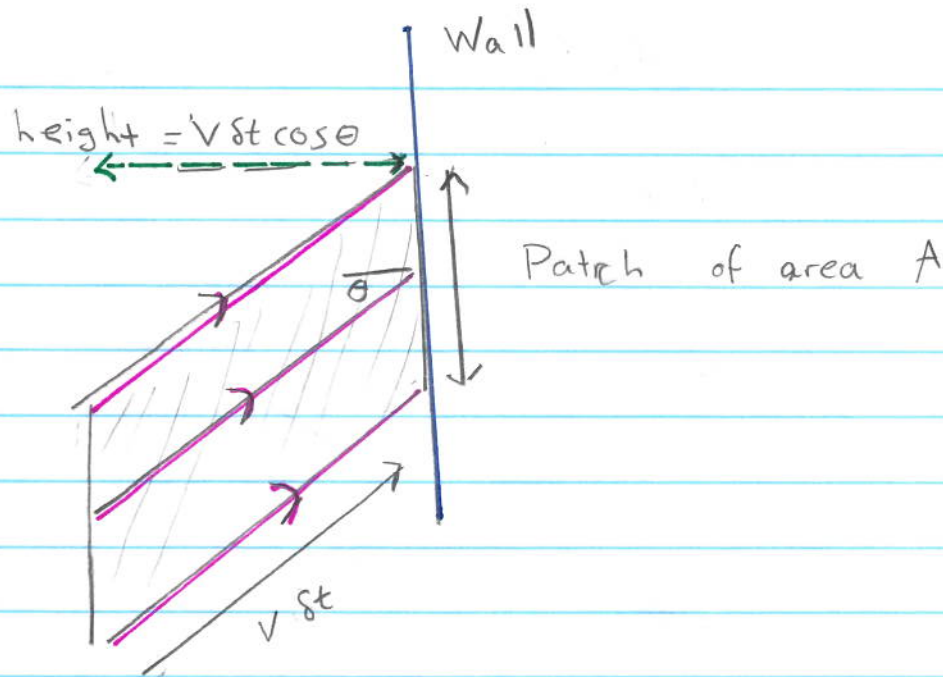 Wall
height = V δt cosθ
Patch of area A
θ
v δt